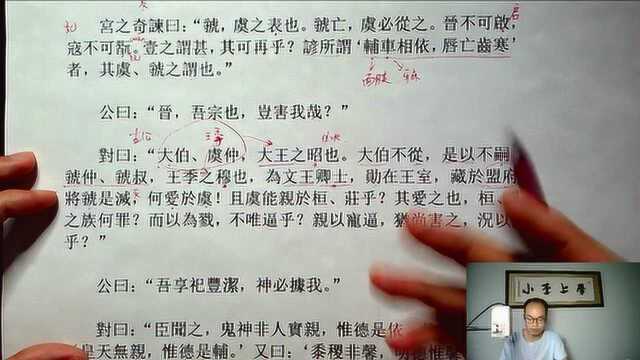 宮之奇諫曰：“虢，虞之表也。虢亡，虞必從之。晉不可啟，
寇不可翫。壹之謂甚，其可再乎？諺所謂‘輔車相依，唇亡齒寒’
者，其虞、虢之謂也。”
公曰：“晉，吾宗也，豈害我哉？”
對曰：“大伯、虞仲，大王之昭也。大伯不從，是以不嗣
虢仲、虢叔，王季之穆也，為文王卿士，勛在王室，藏於盟府
將虢是滅，何愛於虞！且虞能親於桓、莊乎？其愛之也，桓、
之族何罪？而以為戮，不唯逼乎？親以寵逼，猶尚害之，況以
乎？”
公曰：“吾享祀豐潔，神必據我。”
對曰：“臣聞之，鬼神非人實親，惟德是依
皇天無親，惟德是輔。’又曰：‘黍稷非馨，明德惟
小李上學